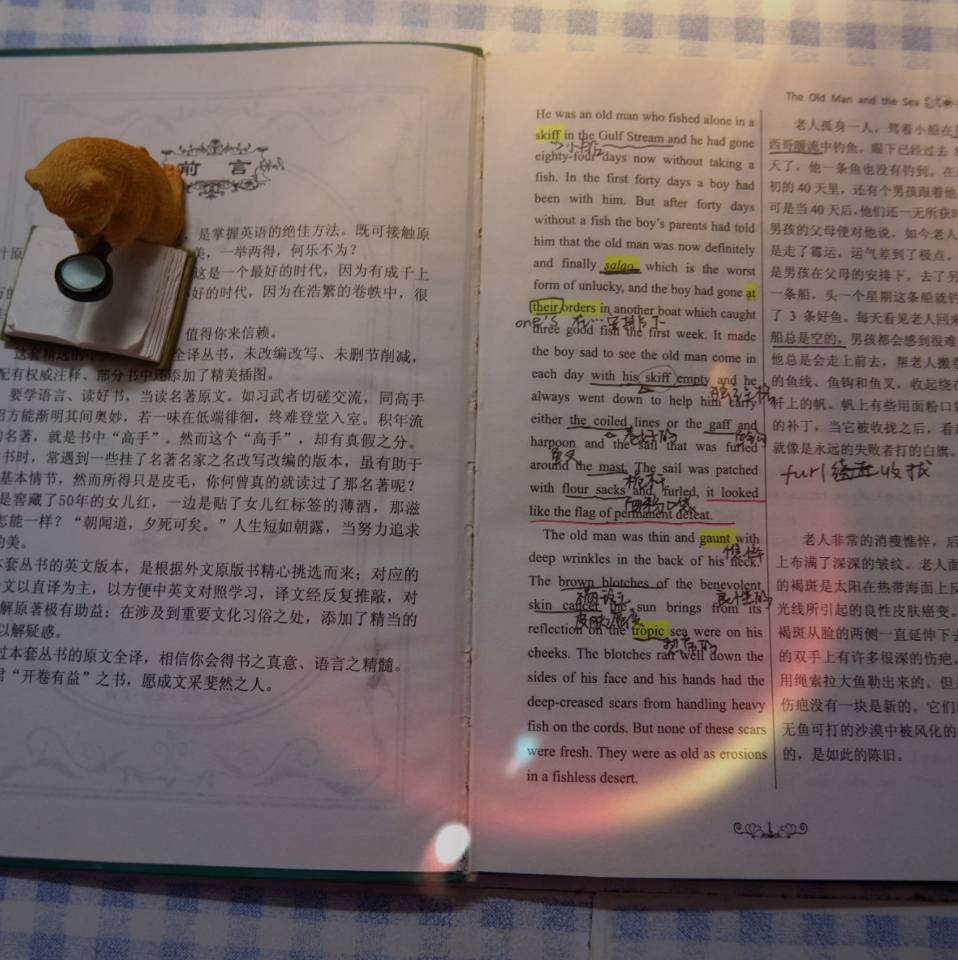 前 言
是掌握英语的绝佳方法。既可接触原
美，一举两得，何乐不为？
这是一个最好的时代，因为有成千上
好的时代，因为在浩繁的卷帙中，很
值得你来信赖。
全译丛书，未改编改写、未删节削减，
配有权威注释、部分书中还添加了精美插图。
要学语言、读好书，当读名著原文。如习武者切磋交流，同高手
招方能渐明其间奥妙，若一味在低端徘徊，终难登堂入室。积年流
的名著，就是书中“高手”。然而这个“高手”，却有真假之分。
书时，常遇到一些挂了名著名家之名改写改编的版本，虽有助于
基本情节，然而所得只是皮毛，你何曾真的就读过了那名著呢？
是窖藏了50年的女儿红，一边是贴了女儿红标签的薄酒，那滋
怎能一样？“朝闻道，夕死可矣。”人生短如朝露，当努力追求
的美。
本套丛书的英文版本，是根据外文原版书精心挑选而来；对应的
文以直译为主，以方便中英文对照学习，译文经反复推敲，对
解原著极有助益；在涉及到重要文化习俗之处，添加了精当的
以解疑惑。
过本套丛书的原文全译，相信你会得书之真意、语言之精髓。
君“开卷有益”之书，愿成文采斐然之人。
The Old Man and the Sea
He was an old man who fished alone in a
skiff in the Gulf Stream and he had gone
小船
eighty-four days now without taking a
fish. In the first forty days a boy had
been with him. But after forty days
without a fish the boy's parents had told
him that the old man was now definitely
and finally salao, which is the worst
form of unlucky, and the boy had gone at
their orders in another boat which caught
one's 在…安排之下
three good fish the first week. It made
the boy sad to see the old man come in
each day with his skiff empty and he
always went down to help him carry
either the coiled lines or the gaff and
harpoon and the sail that was furled
鱼叉
around the mast. The sail was patched
桅杆
with flour sacks and, furled, it looked
like the flag of permanent defeat.
The old man was thin and gaunt with
憔悴
deep wrinkles in the back of his neck.
The brown blotches of the benevolent
良性的
skin cancer the sun brings from its
皮肤癌变
reflection on the tropic sea were on his
热带的
cheeks. The blotches ran well down the
sides of his face and his hands had the
deep-creased scars from handling heavy
fish on the cords. But none of these scars
were fresh. They were as old as erosions
in a fishless desert.
老人孤身一人，驾着小船在
西哥暖流中钓鱼，眼下已经过去
天了，他一条鱼也没有钓到。在
初的 40 天里，还有个男孩跟着他
可是当 40 天后，他们还一无所获时
男孩的父母便对他说，如今老人
是走了霉运，运气差到了极点。
是男孩在父母的安排下，去了另
一条船，头一个星期这条船就钓
了 3 条好鱼。每天看见老人回来
船总是空的，男孩都会感到很难
他总是会走上前去，帮老人搬
的鱼线、鱼钩和鱼叉，收起绕在
杆上的帆。帆上有些用面粉口
的补丁，当它被收拢之后，看起
就像是永远的失败者打的白旗。
furl 收拢
老人非常的消瘦憔悴，后
上布满了深深的皱纹。老人面
的褐斑是太阳在热带海面上反
光线所引起的良性皮肤癌变。
褐斑从脸的两侧一直延伸下去
的双手上有许多很深的伤疤，
用绳索拉大鱼勒出来的。但
伤疤没有一块是新的。它们
无鱼可打的沙漠中被风化的
的，是如此的陈旧。
1